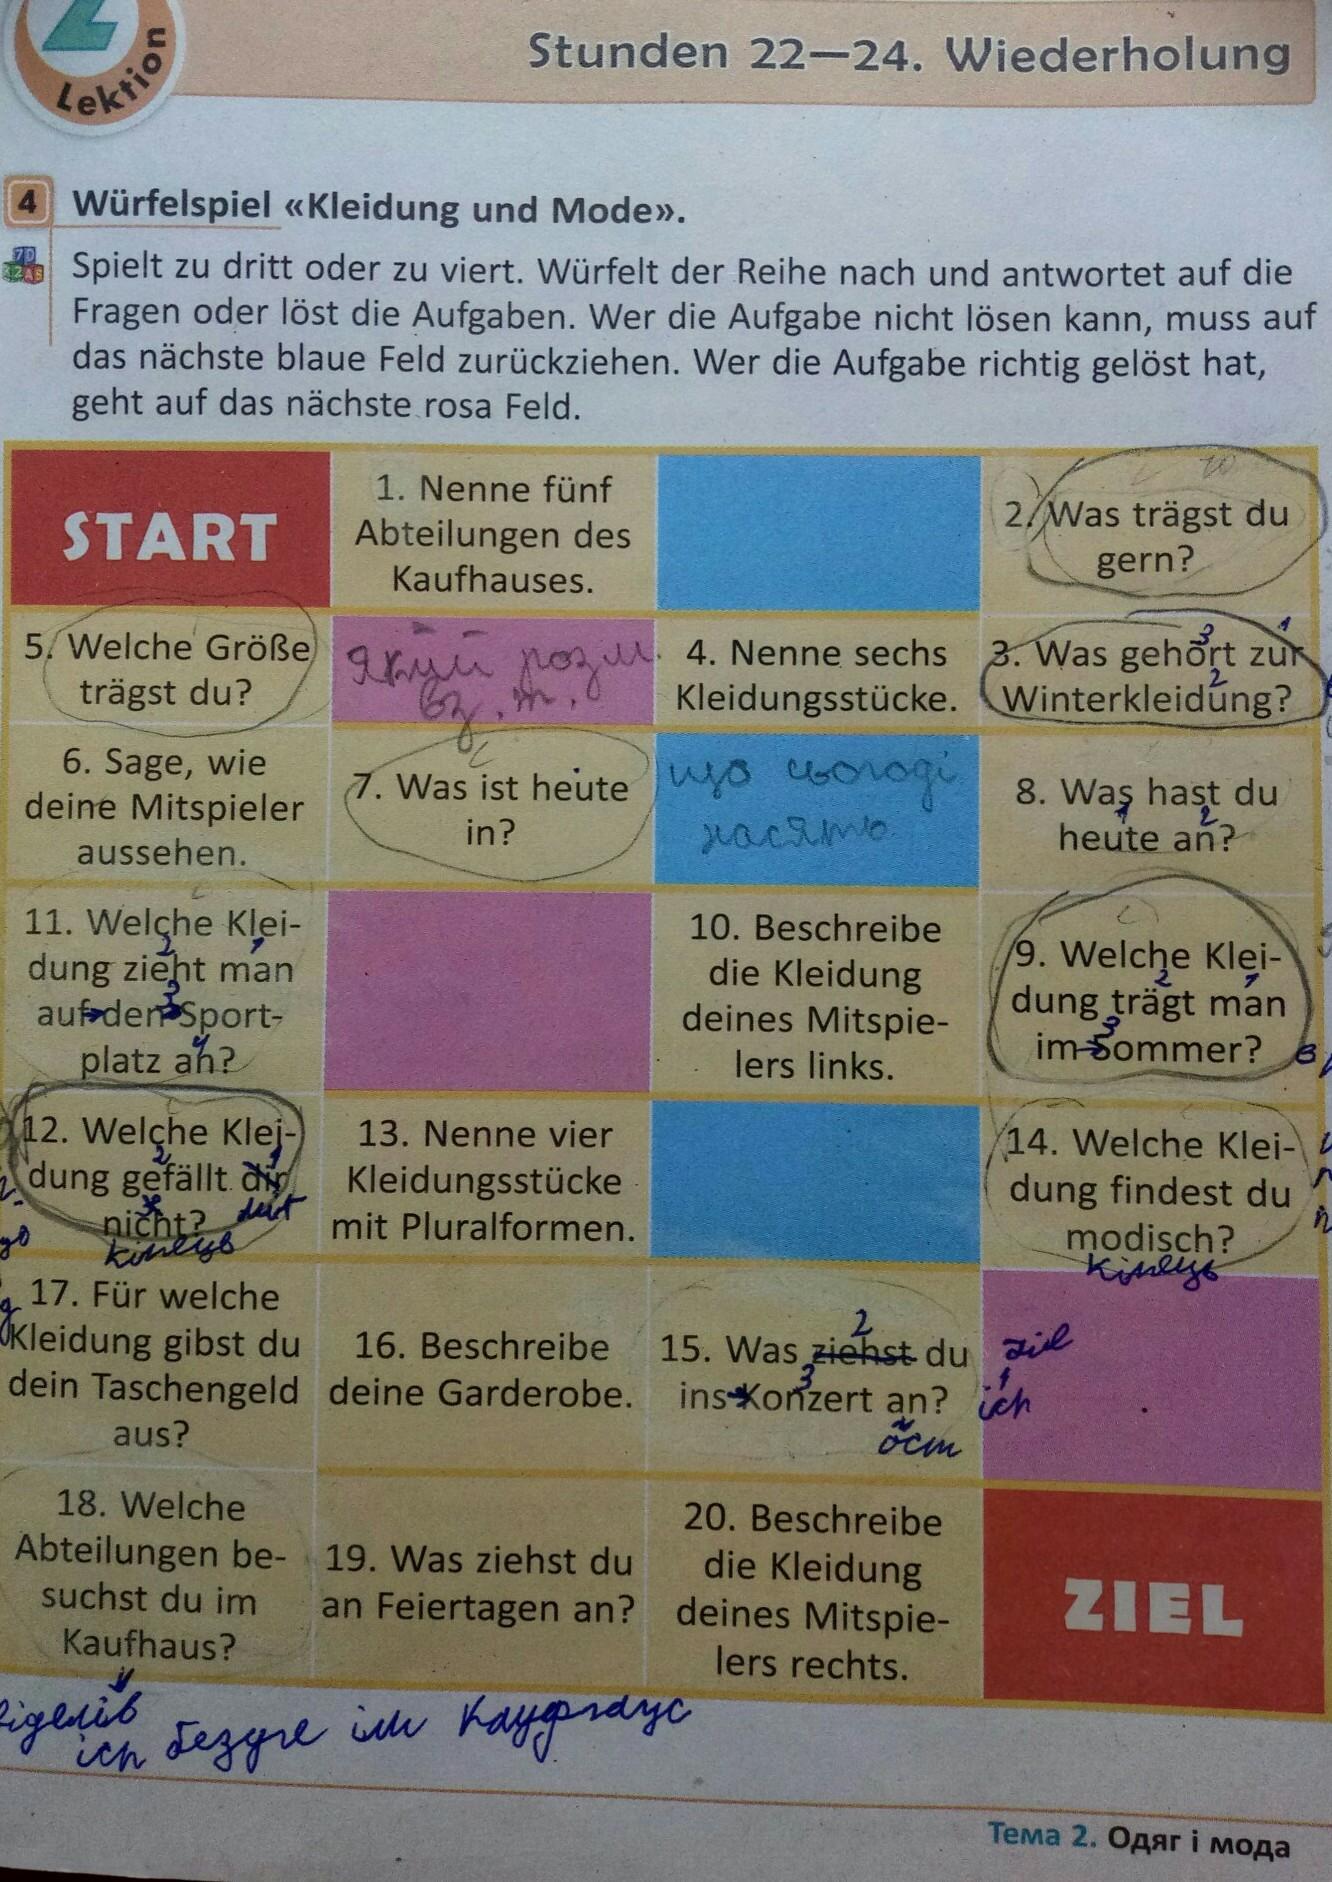 2
Lektion
Stunden 22—24. Wiederholung
4 Würfelspiel «Kleidung und Mode».
Spielt zu dritt oder zu viert. Würfelt der Reihe nach und antwortet auf die
Fragen oder löst die Aufgaben. Wer die Aufgabe nicht lösen kann, muss auf
das nächste blaue Feld zurückziehen. Wer die Aufgabe richtig gelöst hat,
geht auf das nächste rosa Feld.
START
1. Nenne fünf
Abteilungen des
Kaufhauses.
2. Was trägst du
gern?
5. Welche Größe
trägst du?
який розм.
вз. т.
4. Nenne sechs
Kleidungsstücke.
3. Was gehört zur
Winterkleidung?
3 1
2
6. Sage, wie
deine Mitspieler
aussehen.
7. Was ist heute
in?
що сьогоді
насять
8. Was hast du
heute an?
1 2
11. Welche Klei-
dung zieht man
auf den Sport-
platz an?
2 1
3
4
10. Beschreibe
die Kleidung
deines Mitspie-
lers links.
9. Welche Klei-
dung trägt man
im Sommer?
2 1
3
12. Welche Klei-
dung gefällt dir
nicht?
2 1
кінець
13. Nenne vier
Kleidungsstücke
mit Pluralformen.
14. Welche Klei-
dung findest du
modisch?
кінець
17. Für welche
Kleidung gibst du
dein Taschengeld
aus?
16. Beschreibe
deine Garderobe.
15. Was ziehst du
ins Konzert an?
2
3
ziе
1
ich
18. Welche
Abteilungen be-
suchst du im
Kaufhaus?
19. Was ziehst du
an Feiertagen an?
20. Beschreibe
die Kleidung
deines Mitspie-
lers rechts.
ZIEL
ich безухе ім Кауфхаус
Тема 2. Одяг і мода